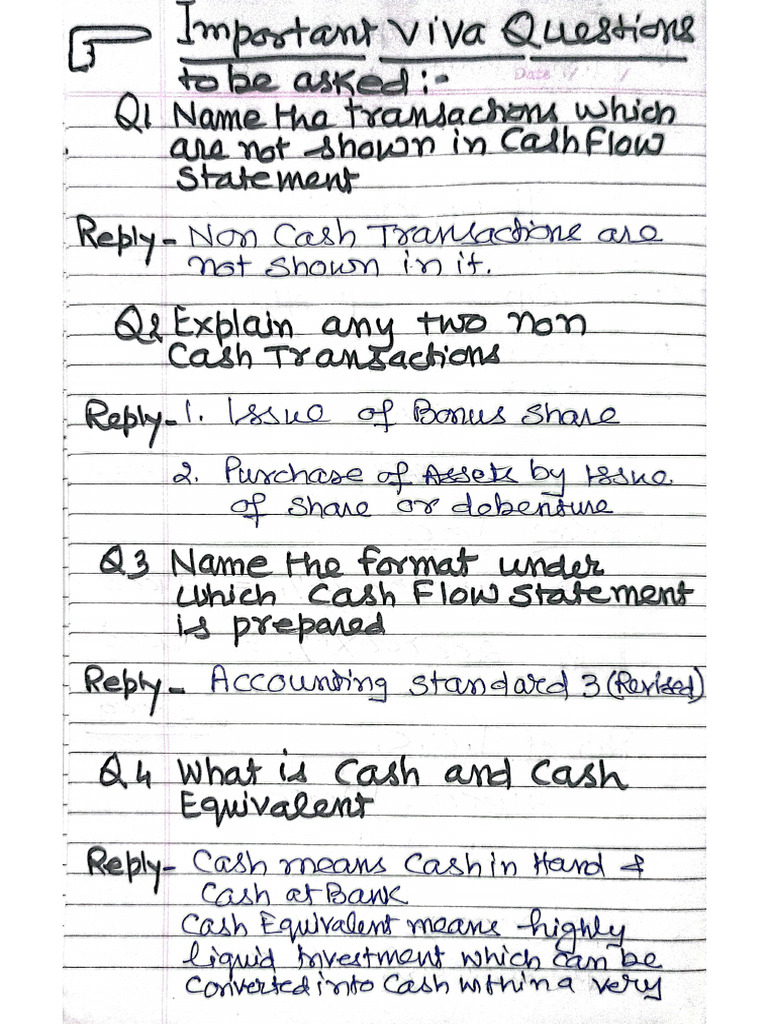 Important Viva Questions
to be asked:-
Date
Q1 Name the transactions which
are not shown in Cash Flow
Statement
Reply- Non Cash Transactions are
not shown in it.
Q2 Explain any two non
Cash Transactions
Reply-1. Issue of Bonus Share
2. Purchase of Assets by Issue
of Share or debenture
Q3 Name the format under
which Cash Flow Statement
is prepared
Reply- Accounting Standard 3 (Revised)
Q4 What is Cash and Cash
Equivalent
Reply- Cash means Cash in Hand &
Cash at Bank
Cash Equivalent means highly
liquid Investment which can be
Converted into Cash within a very